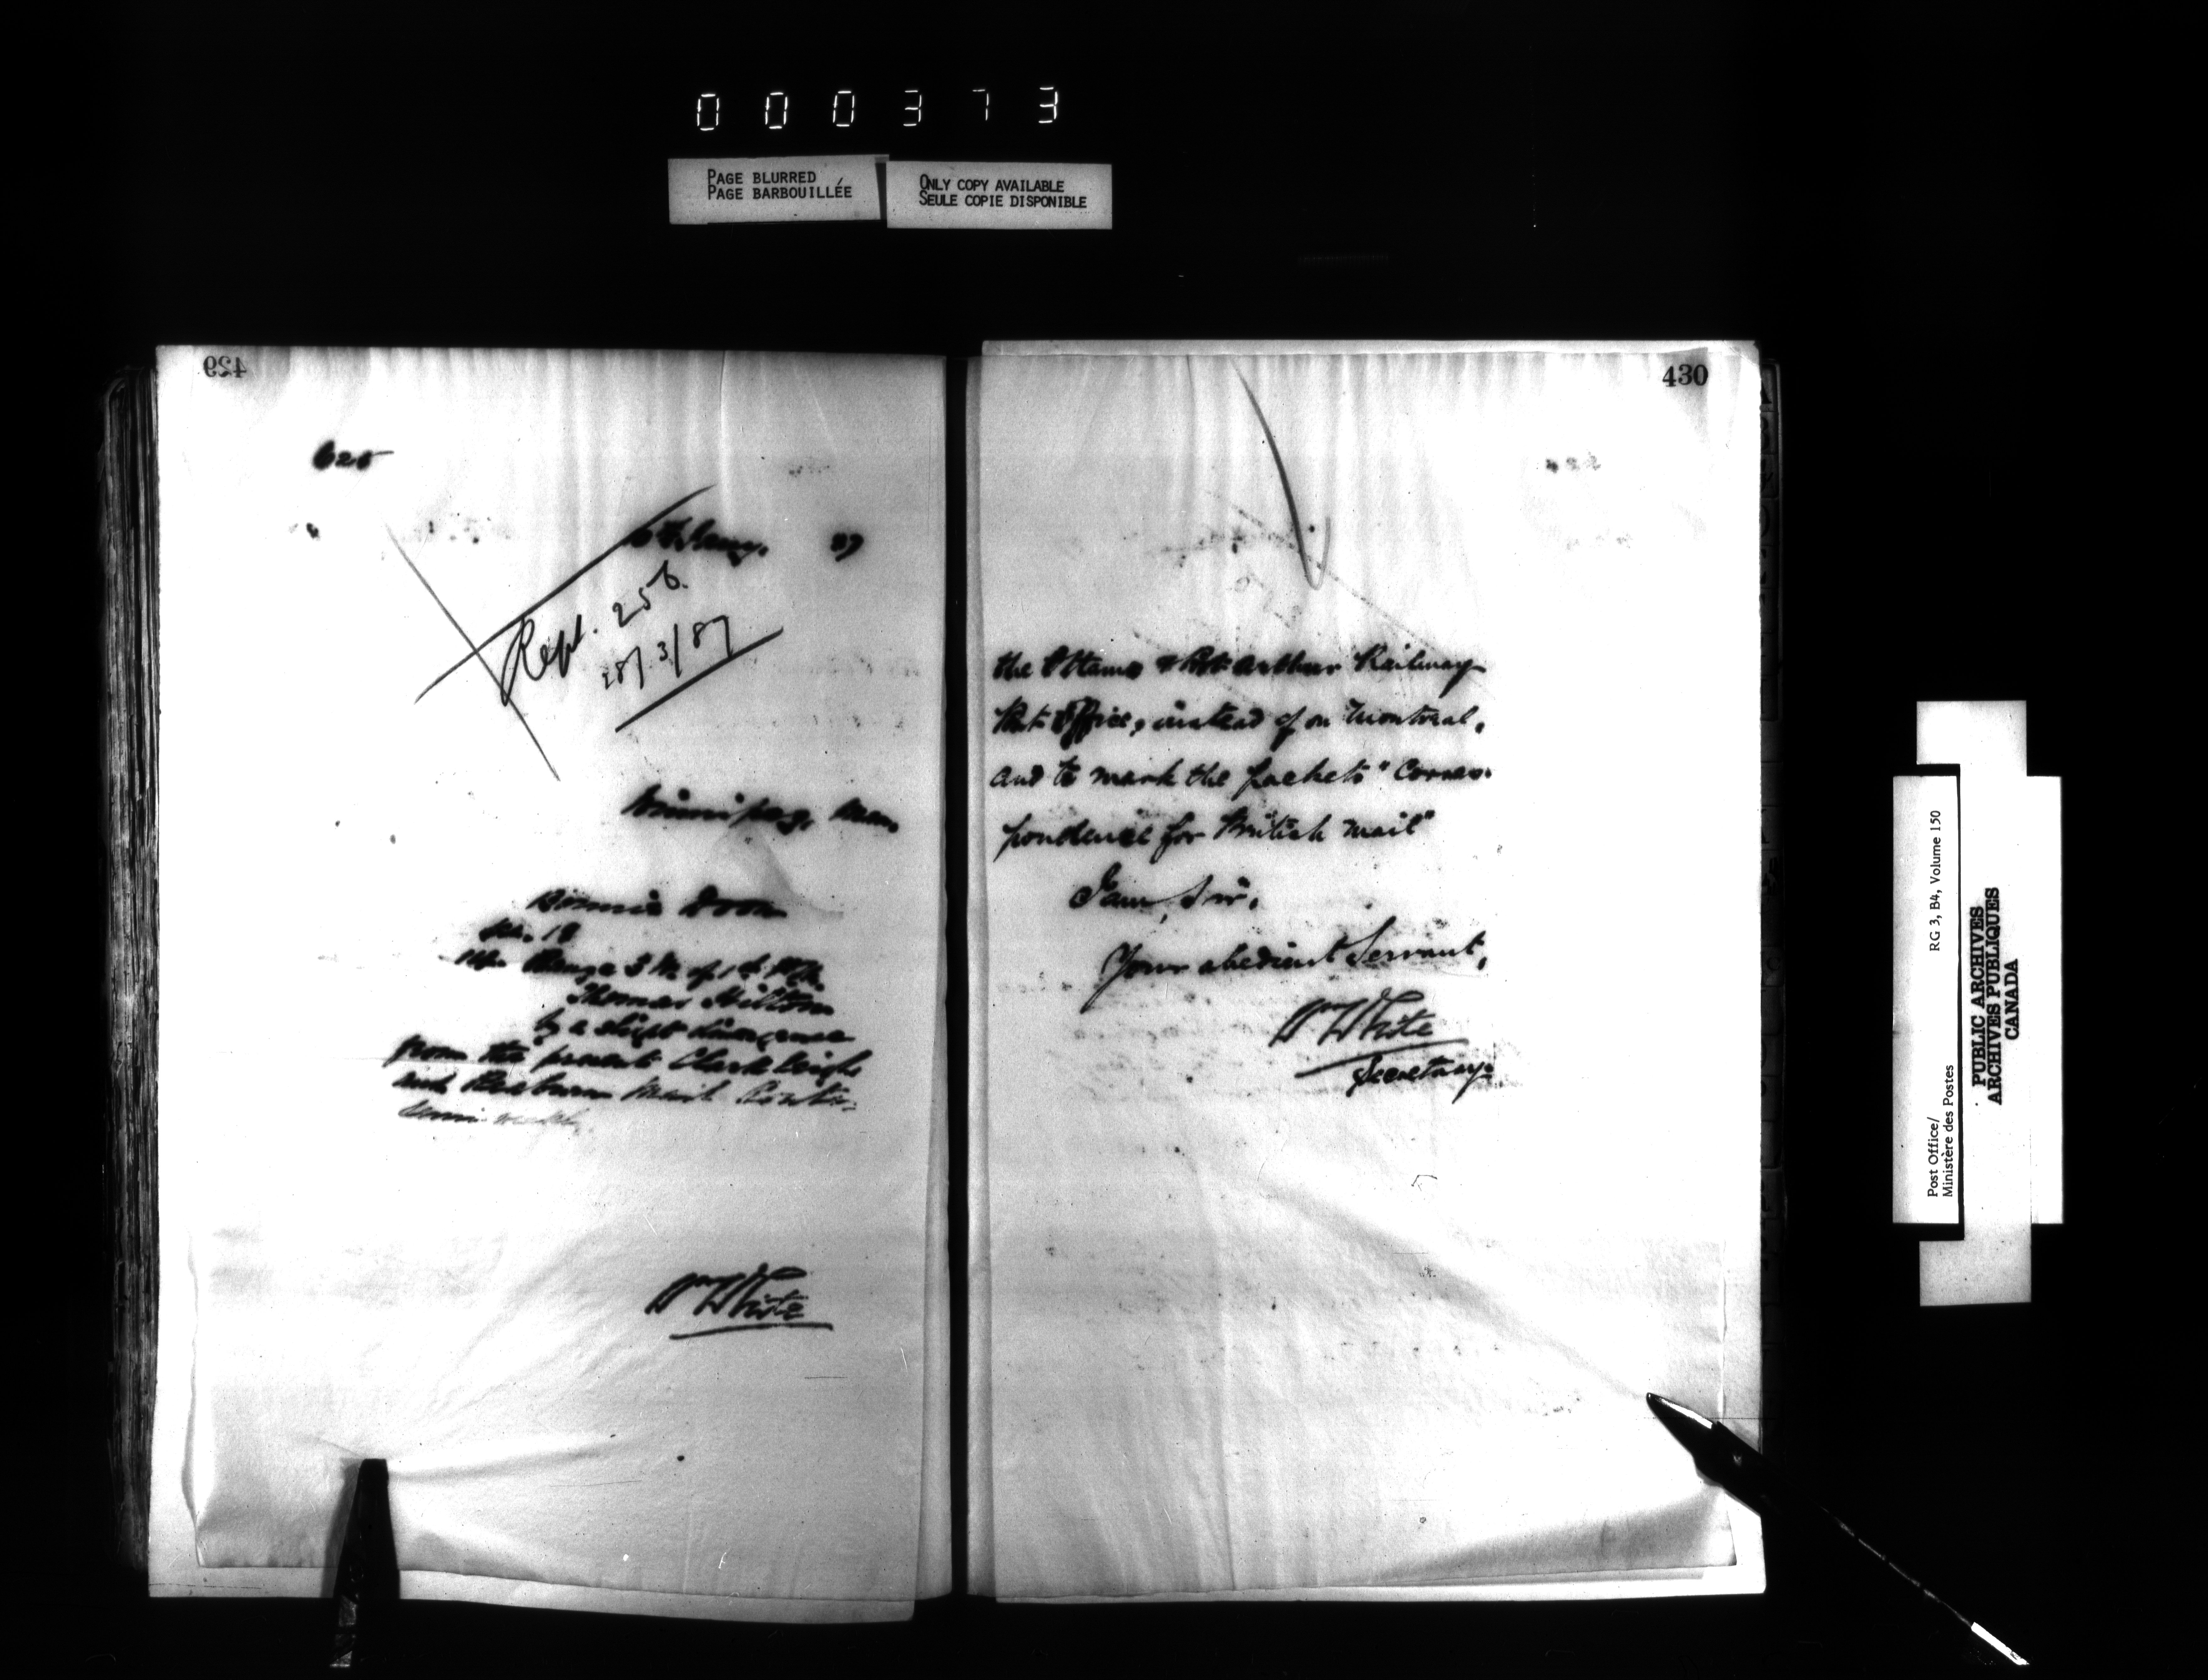 000373
PAGE BLURRED
PAGE BARBOUILLÉE
ONLY COPY AVAILABLE
SEULE COPIE DISPONIBLE
429
625
Jany. 87
Rept. 256.
28/3/87
Winnipeg, Man.
Bonnie Doon
Sec. 18
Range 3 W. of 1st P.M.
Thomas Hilton
by a slight divergence
from the present Clarkleigh
and Raeburn Mail Route
Semi weekly
Wm White
430
the Ottawa & Port Arthur Railway
Post Office, instead of on Montreal,
and to mark the packets "Corres-
pondence for British Mail"
I am, Sir,
Your obedient Servant,
Wm White
Secretary.
Post Office/
Ministère des Postes
RG 3, B4, Volume 150
PUBLIC ARCHIVES
ARCHIVES PUBLIQUES
CANADA